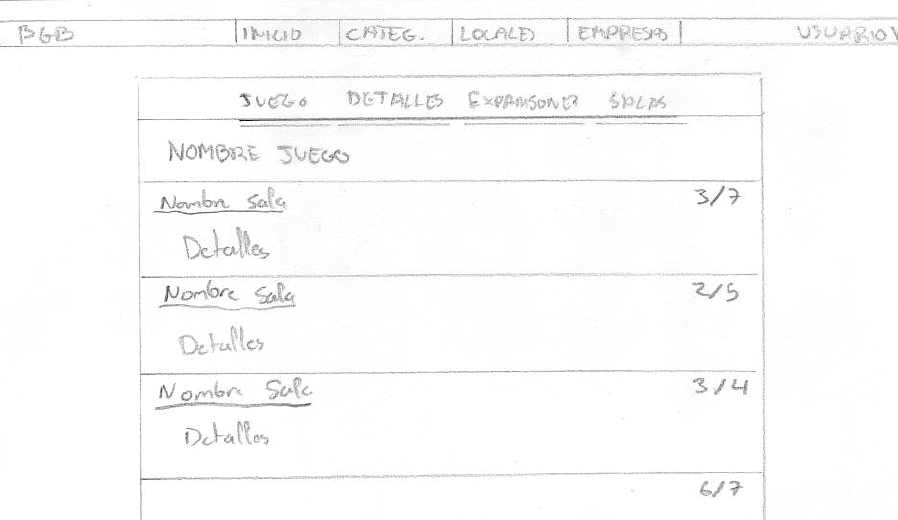 BGB INICIO CATEG. LOCALES EMPRESAS USUARIO
JUEGO DETALLES EXPANSIONES SALAS
NOMBRE JUEGO
Nombre Sala 3/7
Detalles
Nombre Sala 2/5
Detalles
Nombre Sala 3/4
Detalles
6/7